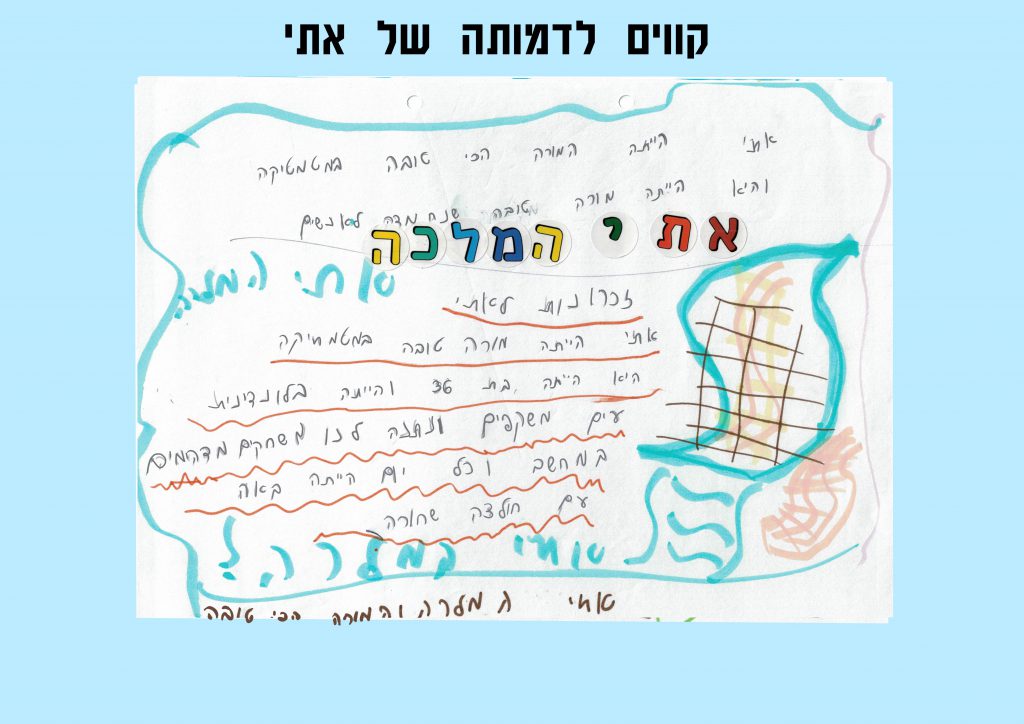 קווים לדמותה של אתי
אתי הייתה המורה הכי טובה במטמטיקה
והיא הייתה מורה טובה לאנשים
אתי המלכה
אתי המלכה
זכרונות לאתי
אתי הייתה מורה טובה במטמתיקה
היא הייתה בת 36 והייתה בלונדינית
עים משקפים ונתנה לנו משחקים מדהמים
במחשב וכל יום הייתה באה
עם חולצה שחורה
אתי המלכה!
אתי המלכה והמורה הכי טובה